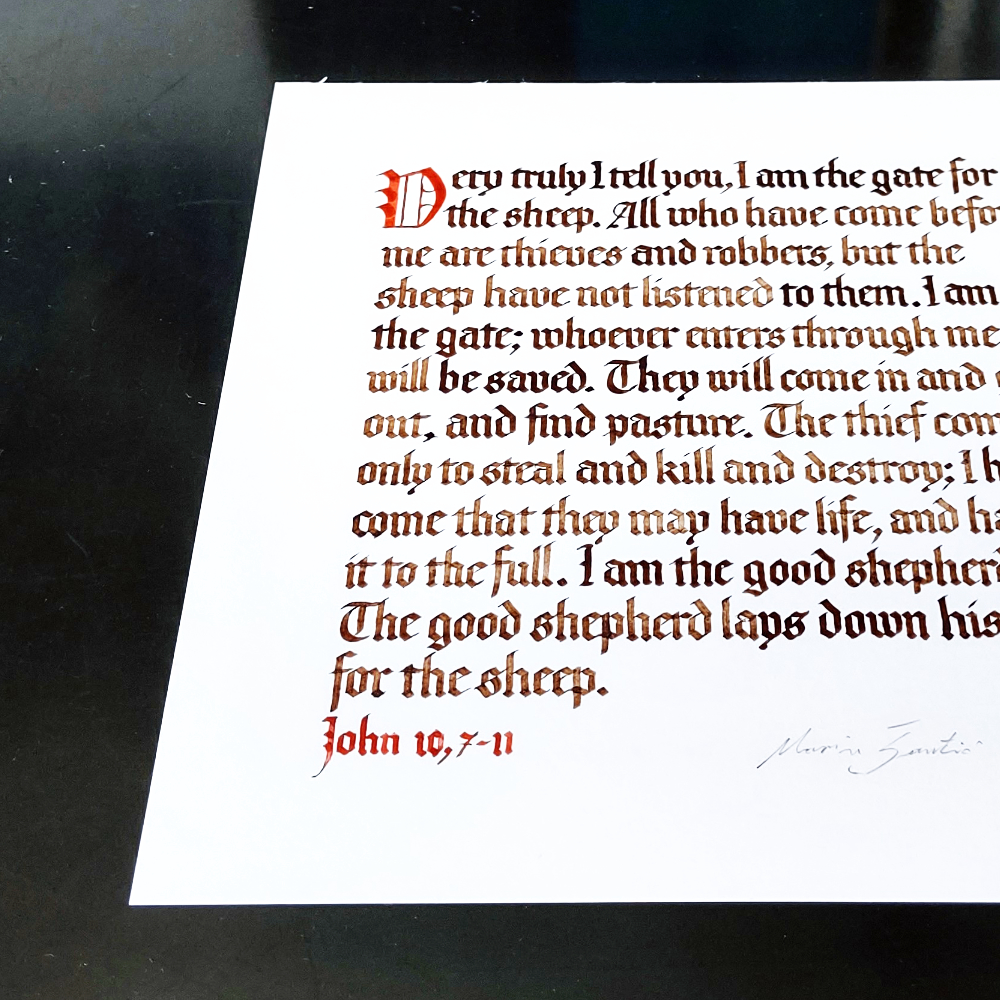 Very truly I tell you, I am the gate for
the sheep. All who have come befo
me are thieves and robbers, but the
sheep have not listened to them. I am
the gate; whoever enters through me
will be saved. They will come in and g
out, and find pasture. The thief com
only to steal and kill and destroy; I h
come that they may have life, and ha
it to the full. I am the good shepherd
The good shepherd lays down his
for the sheep.
John 10,7-11